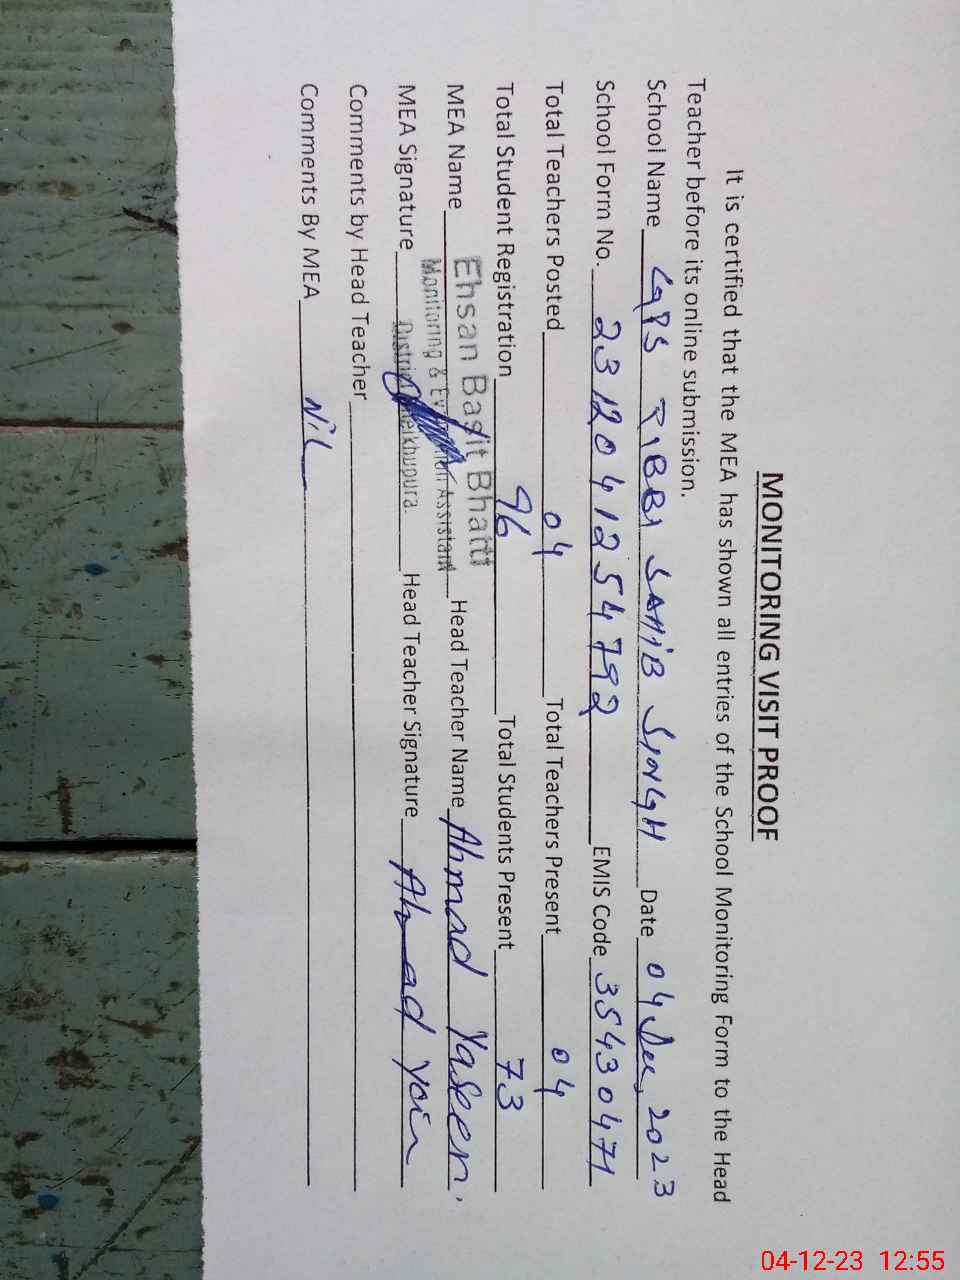 MONITORING VISIT PROOF
It is certified that the MEA has shown all entries of the School Monitoring Form to the Head
Teacher before its online submission.
School Name GPS TiBBi SAHiB SiNGH Date 04 Dec, 2023
School Form No. 2312041254792 EMIS Code 35430471
Total Teachers Posted 04 Total Teachers Present 04
Total Student Registration 96 Total Students Present 73
MEA Name Ehsan Basit Bhatti Head Teacher Name Ahmad Yaseen.
Monitoring & Assistant
MEA Signature District Sheikhupura. Head Teacher Signature Ahmad
Comments by Head Teacher
Comments By MEA Nil
04-12-23 12:55